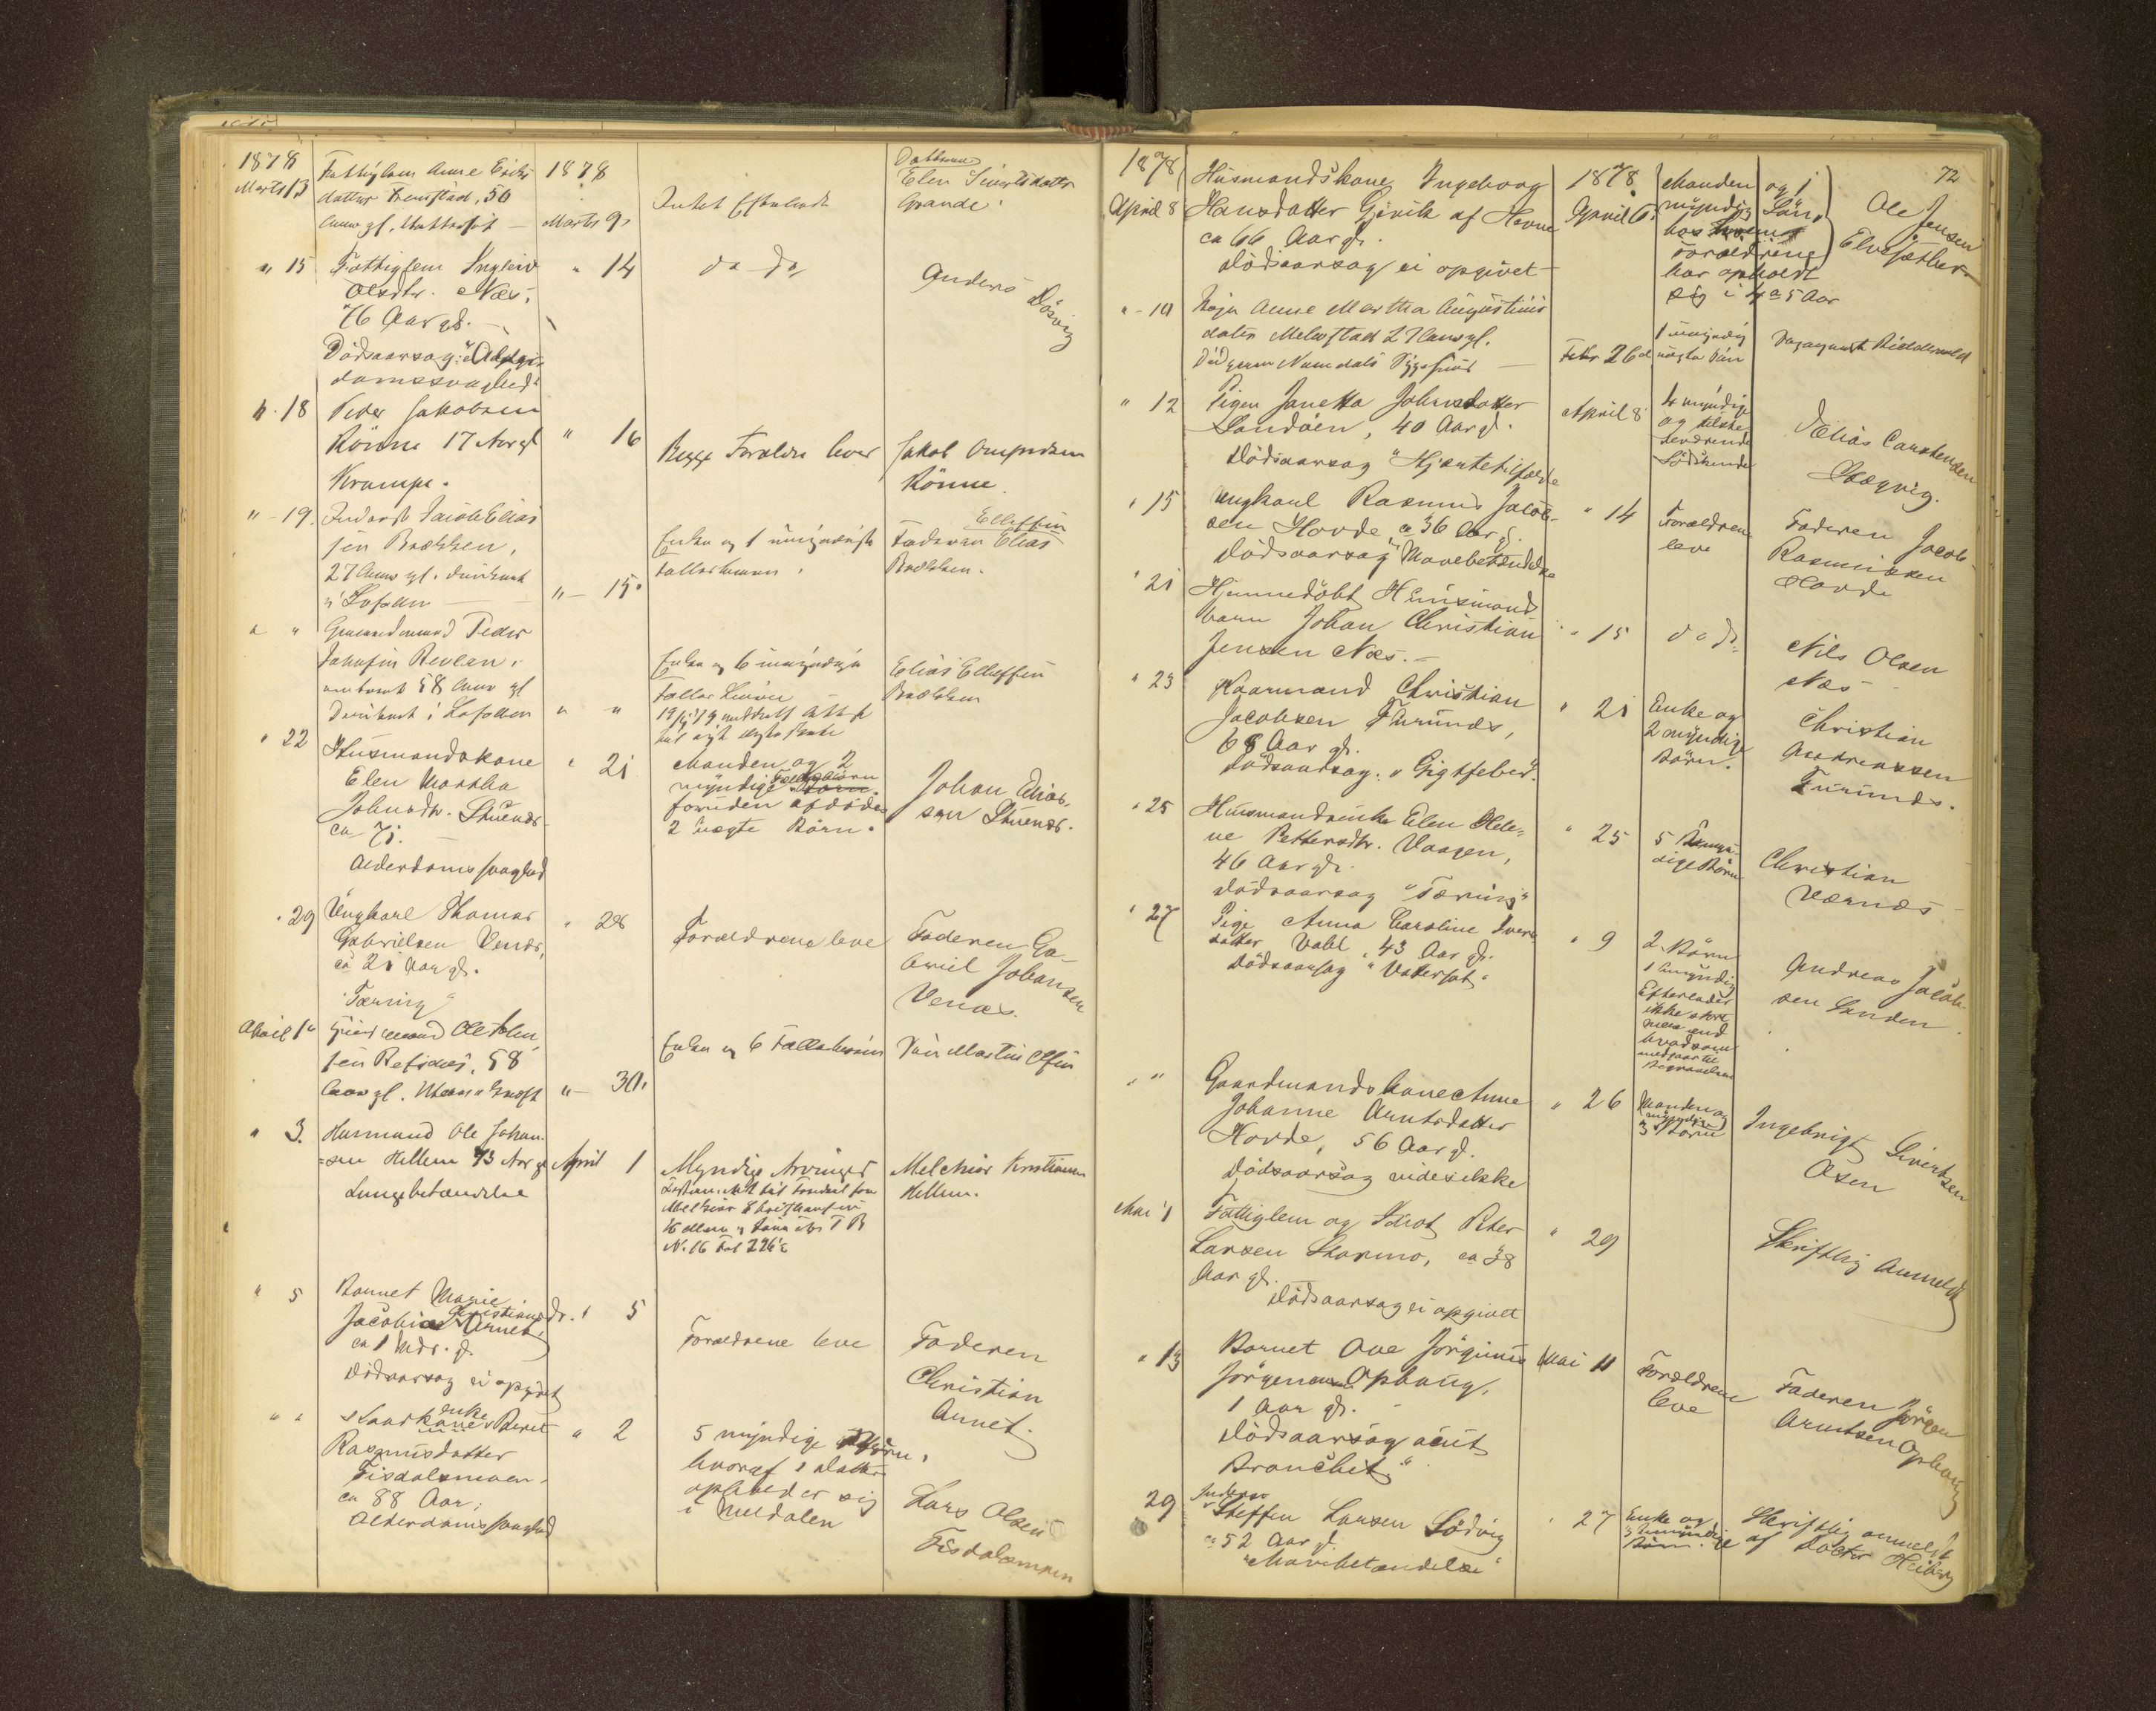 1878
Marts 13
Fattiglem Anne Erics
datter Fremstad, 50
Aar gl. Vattersot
1878
Marts 9.
Intet Efterladt
Datteren
Elen Sivertsdatter
Grande.
" 15
Fattiglem Ingleiv
Olsdtr. Næs.
76 Aar gl.
Dødsaarsag: "Alder-
domssvaghed"
" 14
do do
Anders
Døsvig
" 18
Peder Jakobsen
Rönne 17 Aar gl
Krampe.
" 16
Begge Foraldre lever
Jakob
Rönne.
" - 19.
Inderst Jacob Elias
sen Brækken,
27 Aar gl. druknet
i Lofoten
" - 15.
Enken og 1 umyndigt
Fællesbarn.
Elleffsen
Faderen Elias
Brækken.
" "
Gaardmand Peder
58 Aar gl
Druknet i Lofoten
" "
Enken og 6 umyndige
Fælles
Elias Elleffsen
Brækken
" 22
Husmandskone
Elen Martha
Johnsdtr.
ca 71.
Alderdomssvaghed
" 21
Manden og 2
myndige Fællesbörn
foruden afdödes
2 uægte Börn.
Johan Elias-
sen
" 29
Ungkarl Thomas
Gabrielsen Venæs,
ca 21 Aar gl.
"Tæring"
" 28
Forældrene leve
Faderen Ga-
briel Johansen
Venæs.
April 1ste
Gaardmand Ole
sen Refsnæs, 58
Aar gl.
" - 30.
Enken og 6 Fællesbörn
Sön Martin Olsen
" 3.
Husmand Ole Johan-
=sen Hellem 73 Aar gl
Lungebetændelse
April 1
Myndige Arvinger
N. 16 Fol 226
Melchior Kristiansen
Hellem.
" 5
Barnet Marie
Jacobine Christiansdr.
Aunet,
ca 1 Mdr. gl.
Dödsaarsag ei opgivet
" 5
Forældrene leve
Faderen
Christian
Aunet.
" "
enke
Kaarkone Beret
Rasmusdatter
Fisdalsmoen.
ca 88 Aar.
Alderdomssvaghed
" 2
5 myndige Börn,
hvoraf 1 Datter
opholder sig
i Meldalen
Lars Olsen
Fisdalsmoen
72
1878
April 8
Husmandskone Ingeborg
Hansdatter Gjövik af Hevne
ca 66 Aar gl.
Dödsaarsag ei opgivet
1878.
April 6.
Manden og 1
myndig Sön,
hos
Forældrene
har opholdt
sig i 4 a 5 Aar
Ole Jensen
Elvesæther
" - 10
Pige Anne Martha Augustinus
datter Melumstad 27 Aar gl.
Död paa Namdals Sygehuus
Febr 26de
1 umyndig
uægte Sön
" 12
Pigen Janetta Johnsdatter
Sandöen, 40 Aar gl.
Dödsaarsag "Hjertetilfælde
April 8
4 myndige
Södskende
Elias Carstensen
Skagvig.
" 15
Ungkarl Rasmus Jacob-
sen Hovde, ca 36 Aar gl.
Dödsaarsag "Mavebetændelse
" 14
Forældrene
leve
Faderen Jacob
Rasmussen
Hovde
" 21
Hjemmedöbt Husmands
barn Johan Christian
Jensen Næs.
" 15
do do
Nils Olsen
Næs
" 23
Kaarmand Christian
Jacobsen Furunes,
68 Aar gl.
Dödsaarsag. "Gigtfeber".
" 21
Enke og
2 myndige
Börn.
Christian
Andreassen
Furunes.
" 25
Husmandsenke Elen Hele-
ne Pettersdtr. Vaagen,
46 Aar gl.
Dödsaarsag "Tæring"
" 25
5 umyn-
dige Börn
Christian
Værnæs
" 27
Pige Anna Caroline Iver
datter Vahl, 43 Aar gl.
Dödsaarsag "Vattersot"
" 9
2 Börn
1 umyndig
Efterlader
ikke stort
mere end
hvad som
medgaar til
Begravelsen
Andreas Jacob-
sen Sanden.
" "
Gaardmandskone Anne
Johanne Arntsdatter
Hovde, 56 Aar gl.
Dödsaarsag vides ikke
" 26
Manden og
myndige
3 Börn
Ingebrigt Sivertsen
Osen
Mai 1
Fattiglem og Idiot Peter
Larsen Skarmo, ca 38
Aar gl.
Dödsaarsag ei opgivet
" 29
Skriftlig Anmeldt
" 13
Barnet Ove Jörginus
Jörgensen Ophaug,
1 Aar gl.
Dödsaarsag acut
Bronchit."
Mai 11
Forældrene
leve
Faderen Jörgen
Arntsen Ophaug
29
Inderst
Steffen Larsen Lödvig
ca 52 Aar gl.
"Mavebetændelse"
" 27
Enke og
3 umyndige
Börn.
Skriftlig anmeldt
af Doctor Heiberg